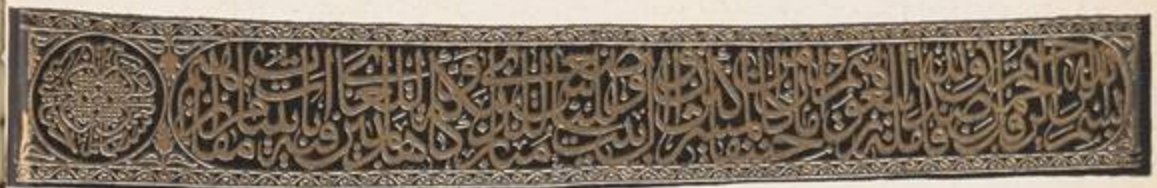 بسم الله الرحمن الرحيم قل صدق الله فاتبعوا ملة ابراهيم حنيفا وما كان من المشركين ان اول بيت وضع للناس للذي ببكة مباركا وهدى للعالمين فيه ايات بينات مقام ابراهيم